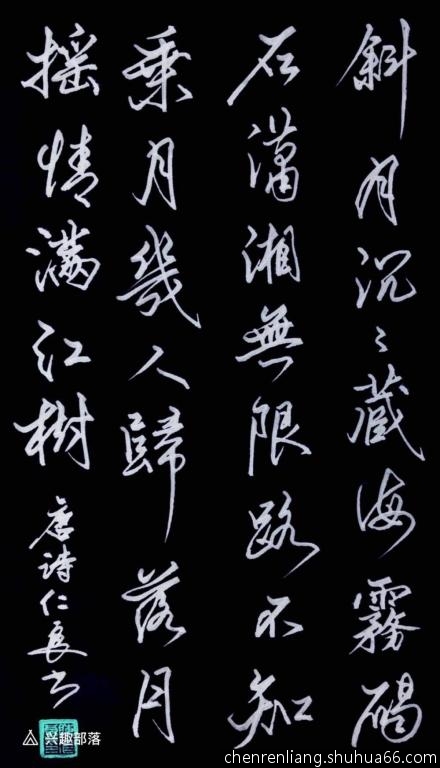 斜月沉々藏海霧碣
石瀟湘無限路不知
乘月幾人歸落月
摇情滿江樹
唐诗仁良书
兴趣部落
chenrenliang.shuhua66.com